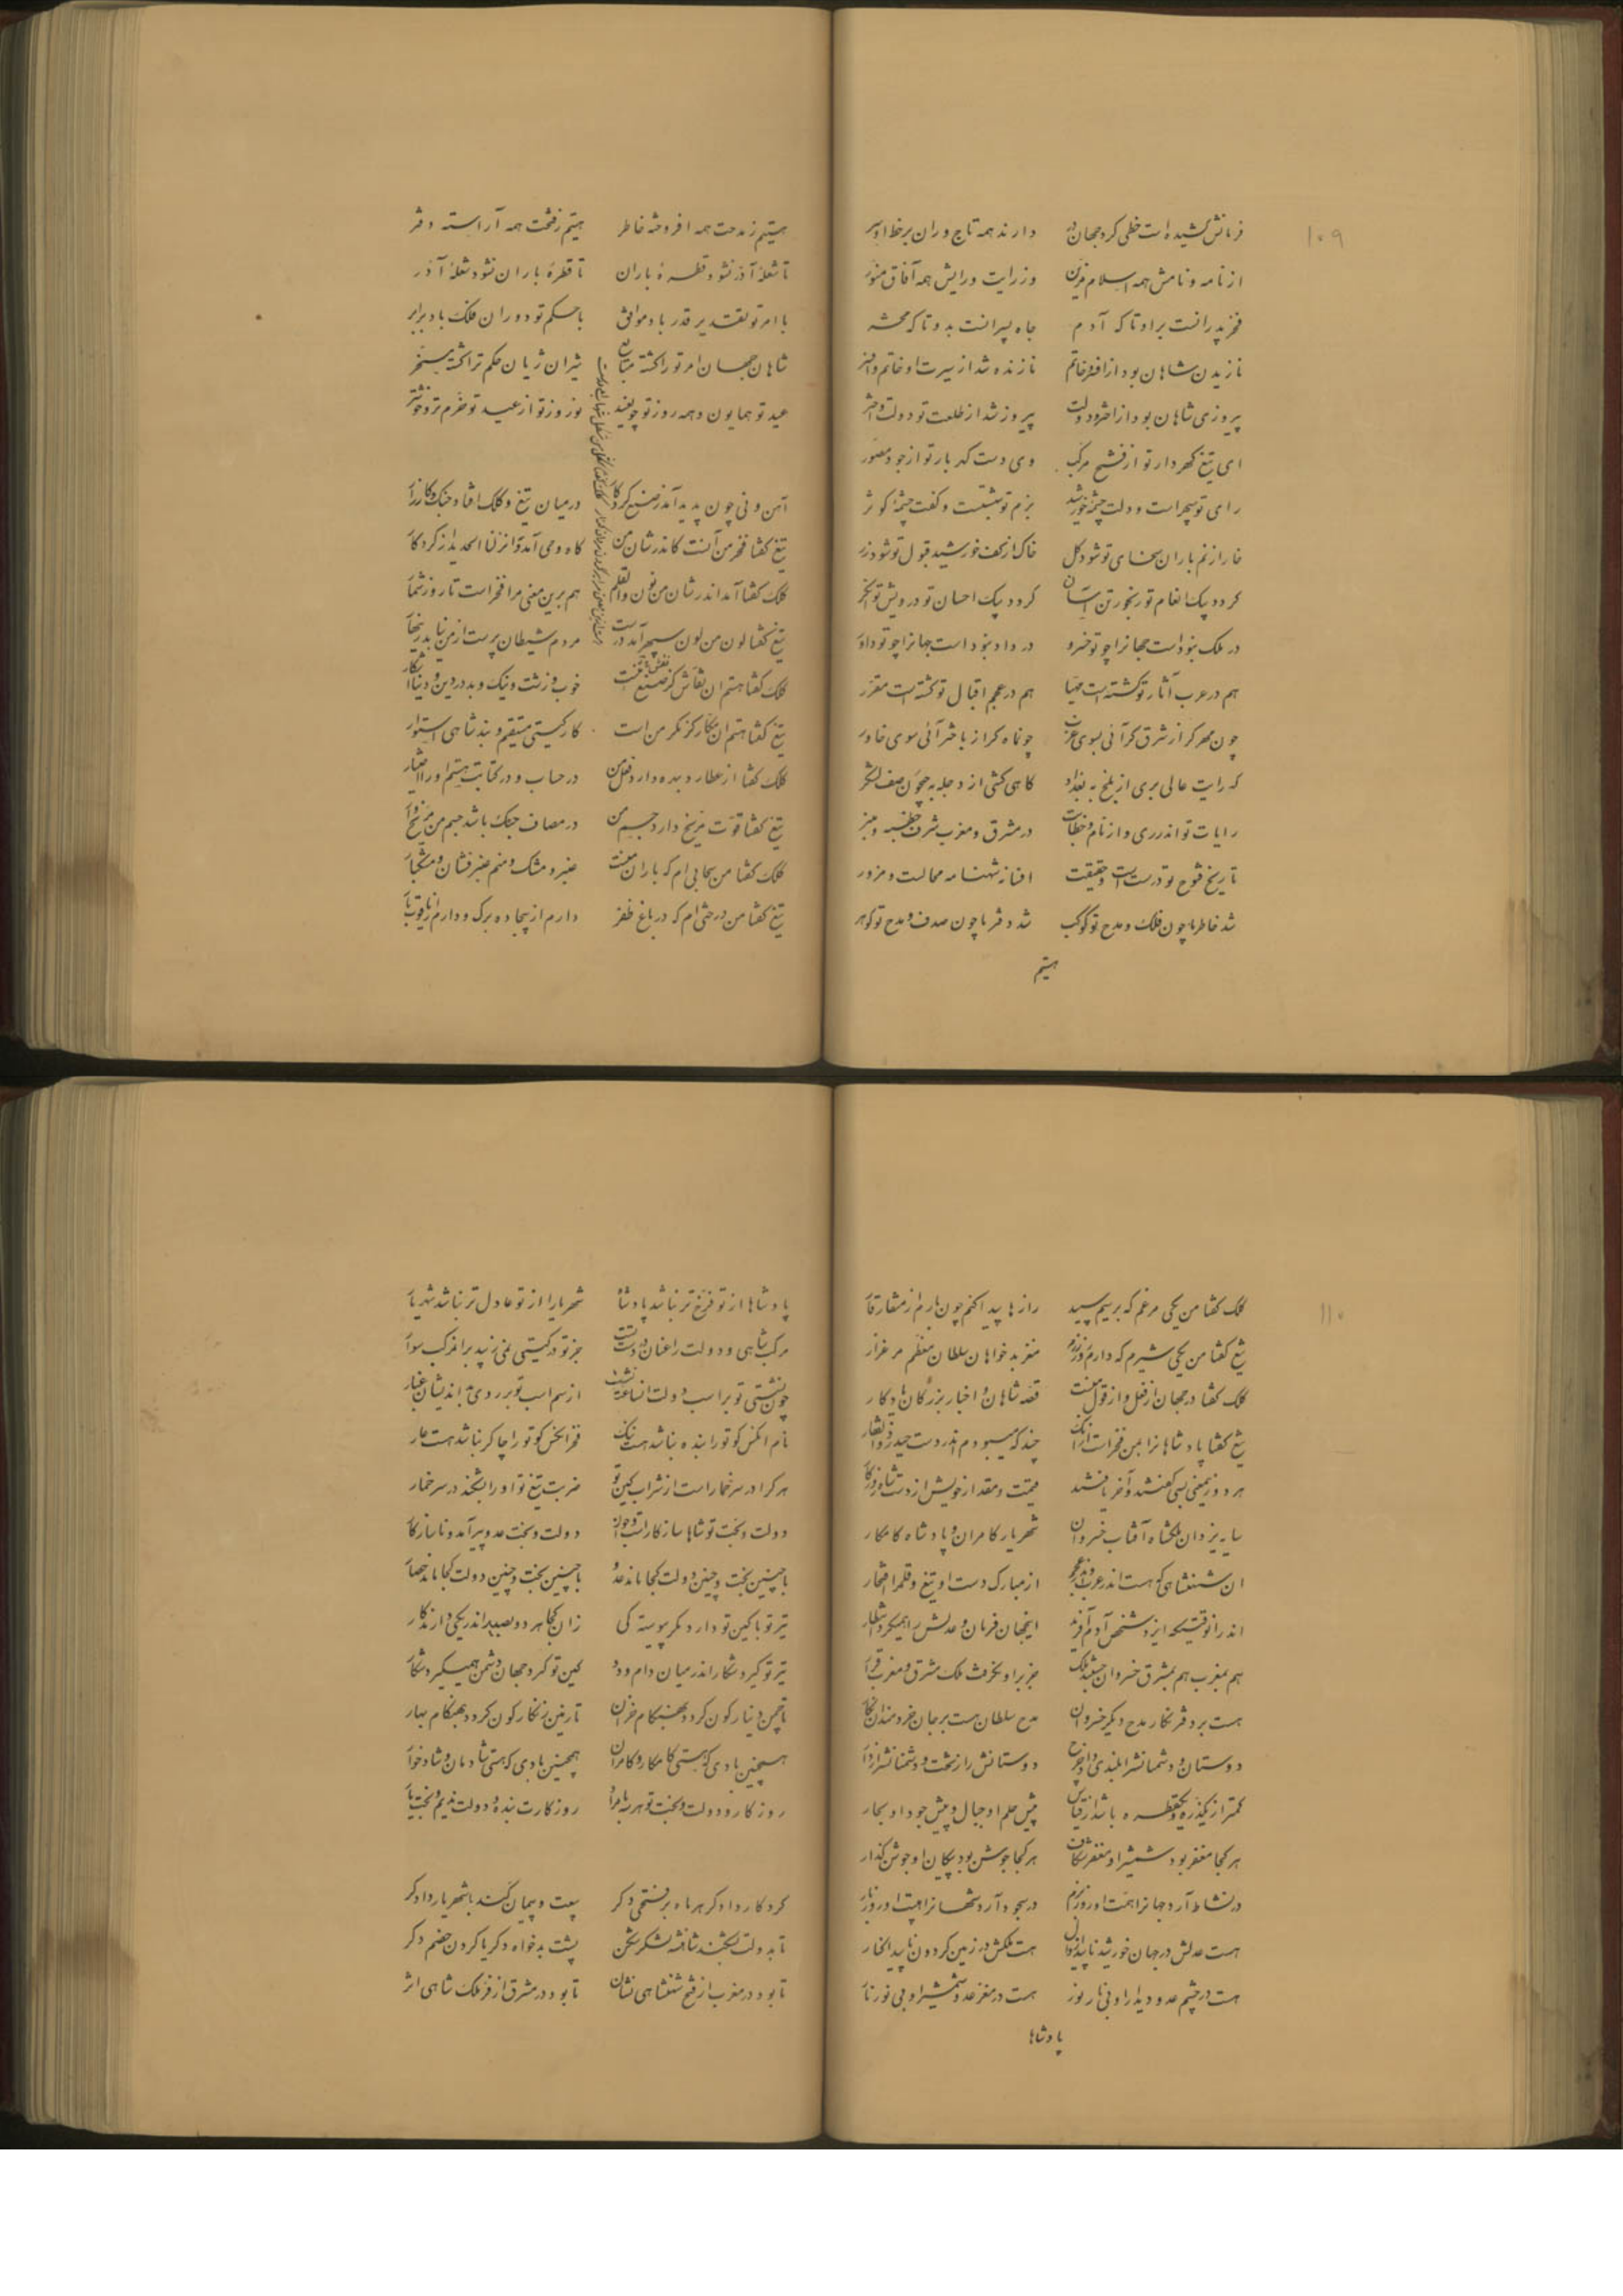 ۱۰۹
فرمانش کشیده است خطی گرد جهان در دارند همه تاج وران بر خط او سر
از نامه و نامش همه اسلام مزین وز رایت و رایش همه آفاق منور
فخر پدرانست بر او تا که آدم جاه پسرانست بدو تا که محشر
نازیدن شاهان بود از افسر و خاتم نازنده شد از سیرت او خاتم و افسر
پیروزی شاهان بود از اختر و دولت پیروز شد از طلعت تو دولت و اختر
ای تیغ گهردار تو از فتح مرکب وی دست گهربار تو از جود مصور
رای تو سپهر است و دولت چشمه خورشید بزم تو بهشتست و کفت چشمه کوثر
خار از نم باران سخای تو شود گل خاک از کف خورشید قبول تو شود زر
گردد بیک انعام تو رنجور تن آسان گردد بیک احسان تو درویش توانگر
در ملک نبوداست جهانرا چو تو خسرو در داد نبوداست جهانرا چو تو داور
هم در عرب آثار تو گشته است مهیا هم در عجم اقبال تو گشته است مقرر
چون مهر گر از شرق گرائی بسوی غرب چو ماه گر از باختر آئی سوی خاور
که رایت عالی بری از بلخ به بغداد گاهی کشی از دجله به جیحون صف لشکر
رایات تو اندر ری و از نام و خطابت در مشرق و مغرب شرف خطبه و منبر
تاریخ فتوح تو درست است و حقیقت افسانه شهنامه محالست و مزور
شد خاطر ما چون فلک و مدح تو کوکب شد دفتر ما چون صدف و مدح تو گوهر
هستیم
هستیم ز مدحت همه افروخته خاطر هستیم ز فتحت همه آراسته دفتر
تا شعلهٔ آذر نشود قطرهٔ باران تا قطرهٔ باران نشود شعلهٔ آذر
با امر تو تقدیر قدر باد موافق با حکم تو دوران فلک باد برابر
شاهان جهان امر تو را گشته متابع شیران ژیان حکم ترا گشته مسخر
عید تو همایون و همه روز تو چون عید نوروز تو از عید تو خرم تر و خوشتر
آهن و نی چون پدید آمد ز صنع کردگار در میان تیغ و کلک افتاد جنگ و کارزار
تیغ گفتا فخر من آنست کاندر شان من گاه وحی آمد و انزلنا الحدید از کردگار
کلک گفتا آمد اندر شان من نون والقلم هم برین معنی مرا فخر است تا روز شمار
تیغ گفتا لون من لون سپهر آمد درست مردم شیطان پرست از من نیابد زینهار
کلک گفتا هستم ان نقاش کز صنع منست خوب و زشت و نیک و بد در دین و دنیا آشکار
تیغ گفتا هستم ان کار کز مکر من است کار گیتی مستقیم و بند شاهی استوار
کلک گفتا از عطارد بهره دارد فعل من در حساب و در کتابت هستم او را اختیار
تیغ گفتا قوت مریخ دارد جسم من در مصاف جنگ باشد جسم من مریخ وار
کلک گفتا من سحابی ام که باران منست عنبر و مشک و منم عنبر فشان و مشکبار
تیغ گفتا من درختی ام که در باغ ظفر دارم از بیجاده برگ و دارم از یاقوت بار
۱۱۰
کلک گفتا من یکی مرغم که بر سیم سپید رازها پیدا کنم چون بارم از منقار قار
تیغ گفتا من یکی شیرم که دارم روز رزم مغز بدخواهان سلطان معظم مرغزار
کلک گفتا در جهان از فعل و از قول منست قصه شاهان و اخبار بزرگان یادگار
تیغ گفتا پادشاهانرا بمن فخر است ازانک چند گه میبودم اندر دست حیدر ذوالفقار
هر دو زین معنی بسی گفتند و آخر یافتند قیمت و مقدار خویش از دست شاه روزگار
سایه یزدان ملکشاه آفتاب خسروان شهریار کامران و پادشاه کامکار
ان شهنشاهی که هست اندر عرب وندر عجم از مبارک دست او تیغ و قلم را افتخار
اندر انوقتیکه ایزد شخص آدم آفرید اینجهان فرمان و عدلش را همیکرد انتظار
هم بمغرب هم بمشرق خسروان جستند ملک جز بر او نگرفت ملک مشرق و مغرب قرار
هست بر دفتر نگار مدح دیگر خسروان مدح سلطان هست بر جان خردمندان نگار
دوستان و دشمنانشرا بلندی داد چرخ دوستانش را ز تخت و دشمنانشرا ز دار
کمتر از یکذره و یکقطره باشد از قیاس پیش حلم او جبال و پیش جود او بحار
هر کجا مغفر بود شمشیر او مغفر شکاف هر کجا جوشن بود پیکان او جوشن گذار
در نشاط آرد جهانرا همت او روز بزم در سجود آرد شهانرا هیبت او روز بار
هست عدلش در جهان خورشید ناپیدا زوال هست ملکش در زمین گردون ناپیدا کنار
هست در چشم عدو دیدار او بی نار نور هست در مغز عدو شمشیر او بی نور نار
پادشاها
پادشاها از تو فرخ تر نباشد پادشا شهریارا از تو عادل تر نباشد شهریار
مرکب شاهی و دولت را عنان در دست تست جز تو در گیتی نمی زیبد بر ان مرکب سوار
چون نشستی تو بر اسب دولت انساعت نشست از سم اسب تو بر روی بد اندیشان غبار
نام انکس کو تو را بنده نباشد هست ننگ فخر انکس کو تو را چاکر نباشد هست عار
هر کرا در سر خمار است از شراب کین تو ضربت تیغ تو او را بشکند در سر خمار
دولت و بخت تو شاها سازگار است و جوان دولت و بخت عدو پیر آمد و ناسازگار
با چنین بخت و چنین دولت کجا ماند عدو با چنین بخت و چنین دولت کجا ماند حصار
تیر تو با کین تو دارد مگر پیوستگی زان کجا هر دو بصید اندر یکی دارند کار
تیر تو گیرد شکار اندر میان دام و دد کین تو گرد جهان دشمن همیگیرد شکار
تا چمن دینار گون گردد بهنگام خزان تا زمین زنگار گون گردد بهنگام بهار
همچنین بادی که هستی کامکار و کامران همچنین بادی که هستی شادمان و شادخوار
روزگار و دولت و بخت تو هر سه بامراد روزگارت بنده و دولت ندیم و بخت یار
کردگار دادگر هر ماه بر فتحی دگر بیعت و پیمان کند با شهریار دادگر
تا بدولت بشکند شاهنشه لشکرشکن پشت بدخواه دگر یا گردن خصم دگر
تا بود در مغرب از فتح شهنشاهی نشان تا بود در مشرق از فر ملک شاهی اثر